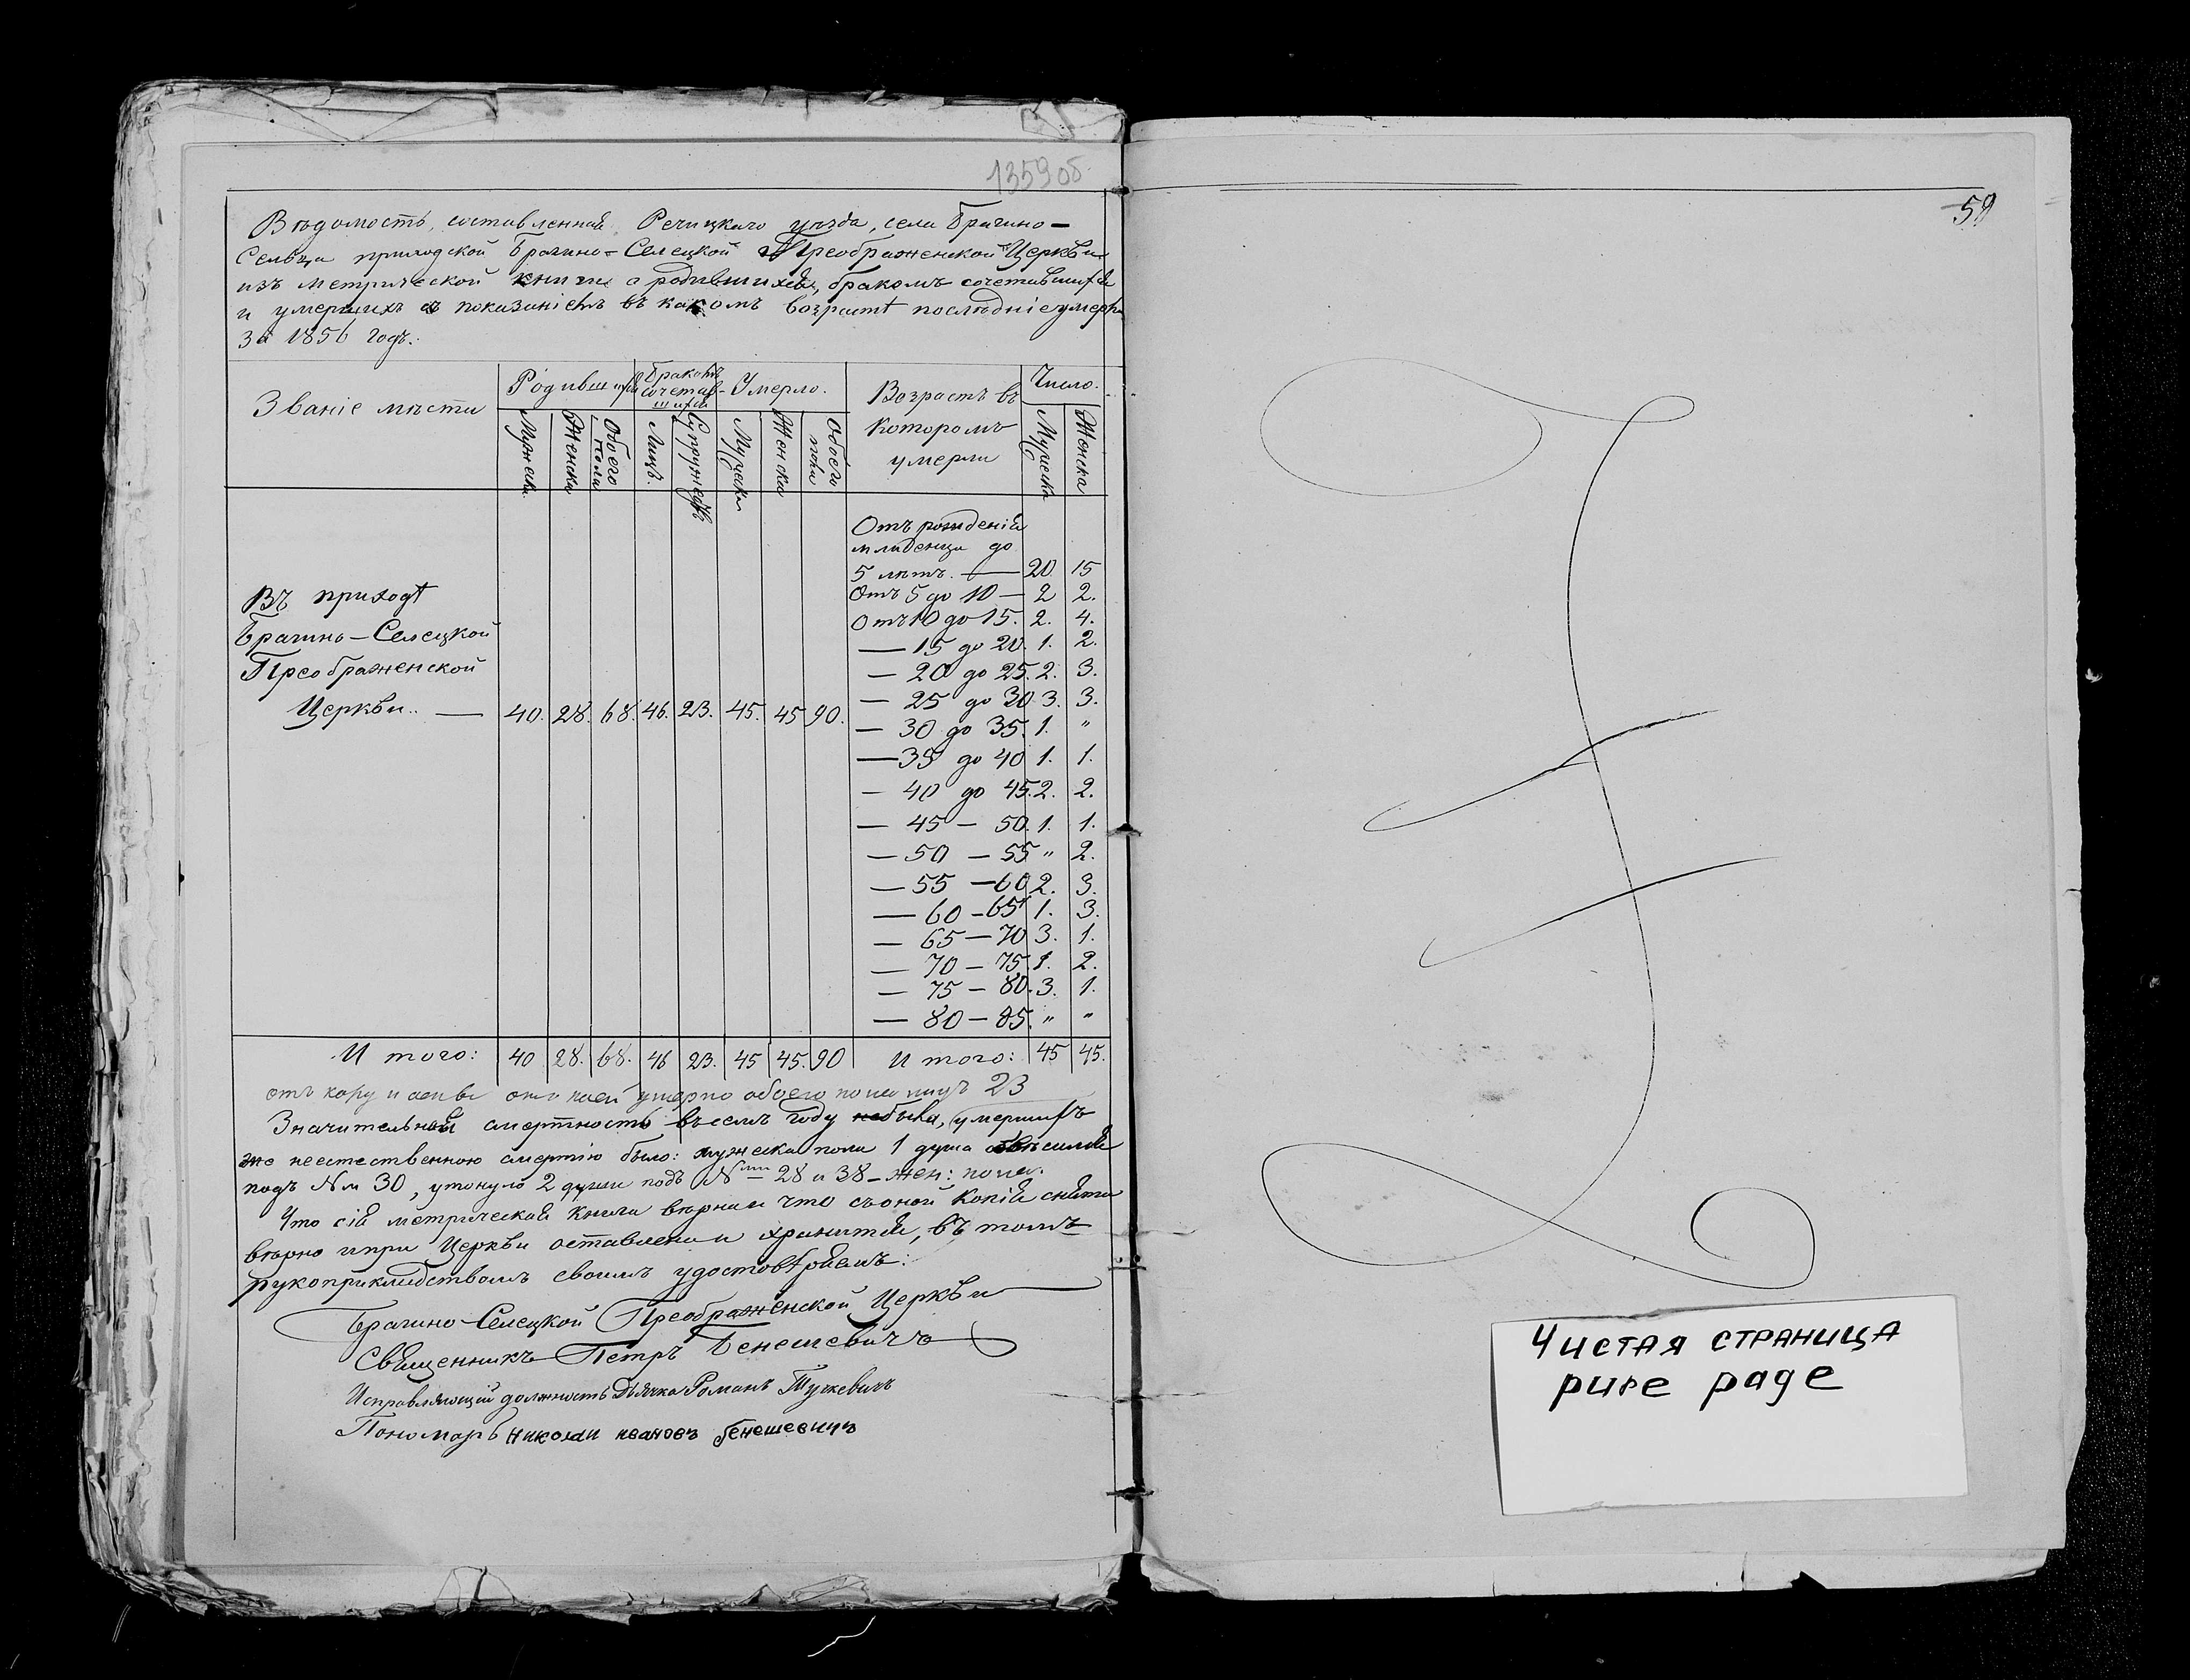 135 9 об.
Вѣдомость, составленная Речицкаго уѣзда, села Брагино-
Сельца приходской Брагино-Селецкой Преображенской Церкви
изъ метрической книги о родившихся, бракомъ сочетавшихся
и умершихъ съ показаніемъ въ какомъ возрастѣ послѣдніе умерли
за 1856 годъ.
Званіе мѣста
Родившихся
Бракомъ сочетав-шихся
Умерло.
Возрастъ въ которомъ умерли
Число.
Мужеска
Женска
Обоего пола
Лицъ.
Супружествъ
Мужеска
Женска
Обоего пола
Мужеска
Женска
Отъ рожденія
младенца до
5 лѣтъ. — 20 15
Отъ 5 до 10 — 2 2.
Отъ 10 до 15. 2. 4.
— 15 до 20. 1. 2.
— 20 до 25. 2. 3.
— 25 до 30 3. 3.
— 30 до 35. 1. "
— 35 до 40 1. 1.
— 40 до 45. 2. 2.
— 45 — 50. 1. 1.
— 50 — 55 " 2.
— 55 — 60 2. 3.
— 60 — 65 1. 3.
— 65 — 70 3. 1.
— 70 — 75. 1. 2.
— 75 — 80. 3. 1.
— 80 — 85. " "
Въ приходѣ
Брагино-Селецкой
Преображенской
Церкви. — 40. 28. 68. 46. 23. 45. 45 90.
И того: 40 28. 68. 46 23. 45 45. 90 И того: 45 45.
отъ кору и оспы умерло обоего пола лицъ 23
Значительной смертность въ семъ году не была, умершихъ
же неестественною смертію было: мужеска пола 1 душа
подъ № м 30, утонуло 2 души подъ № 28 и 38 — жен: пола.
Что сія метрическая книга вѣрна и что съ оной копія снята
вѣрно и при Церкви оставлена и хранится, въ томъ
рукоприкладствомъ своимъ удостовѣряемъ:
Брагино-Селецкой Преображенской Церкви
Священникъ Петръ Бенешевичъ
Исправляющій должность Дьячка Романъ Тучкевичъ
Пономарь Николаи ивановъ бенешевичъ
59
Чистая страница
pure page